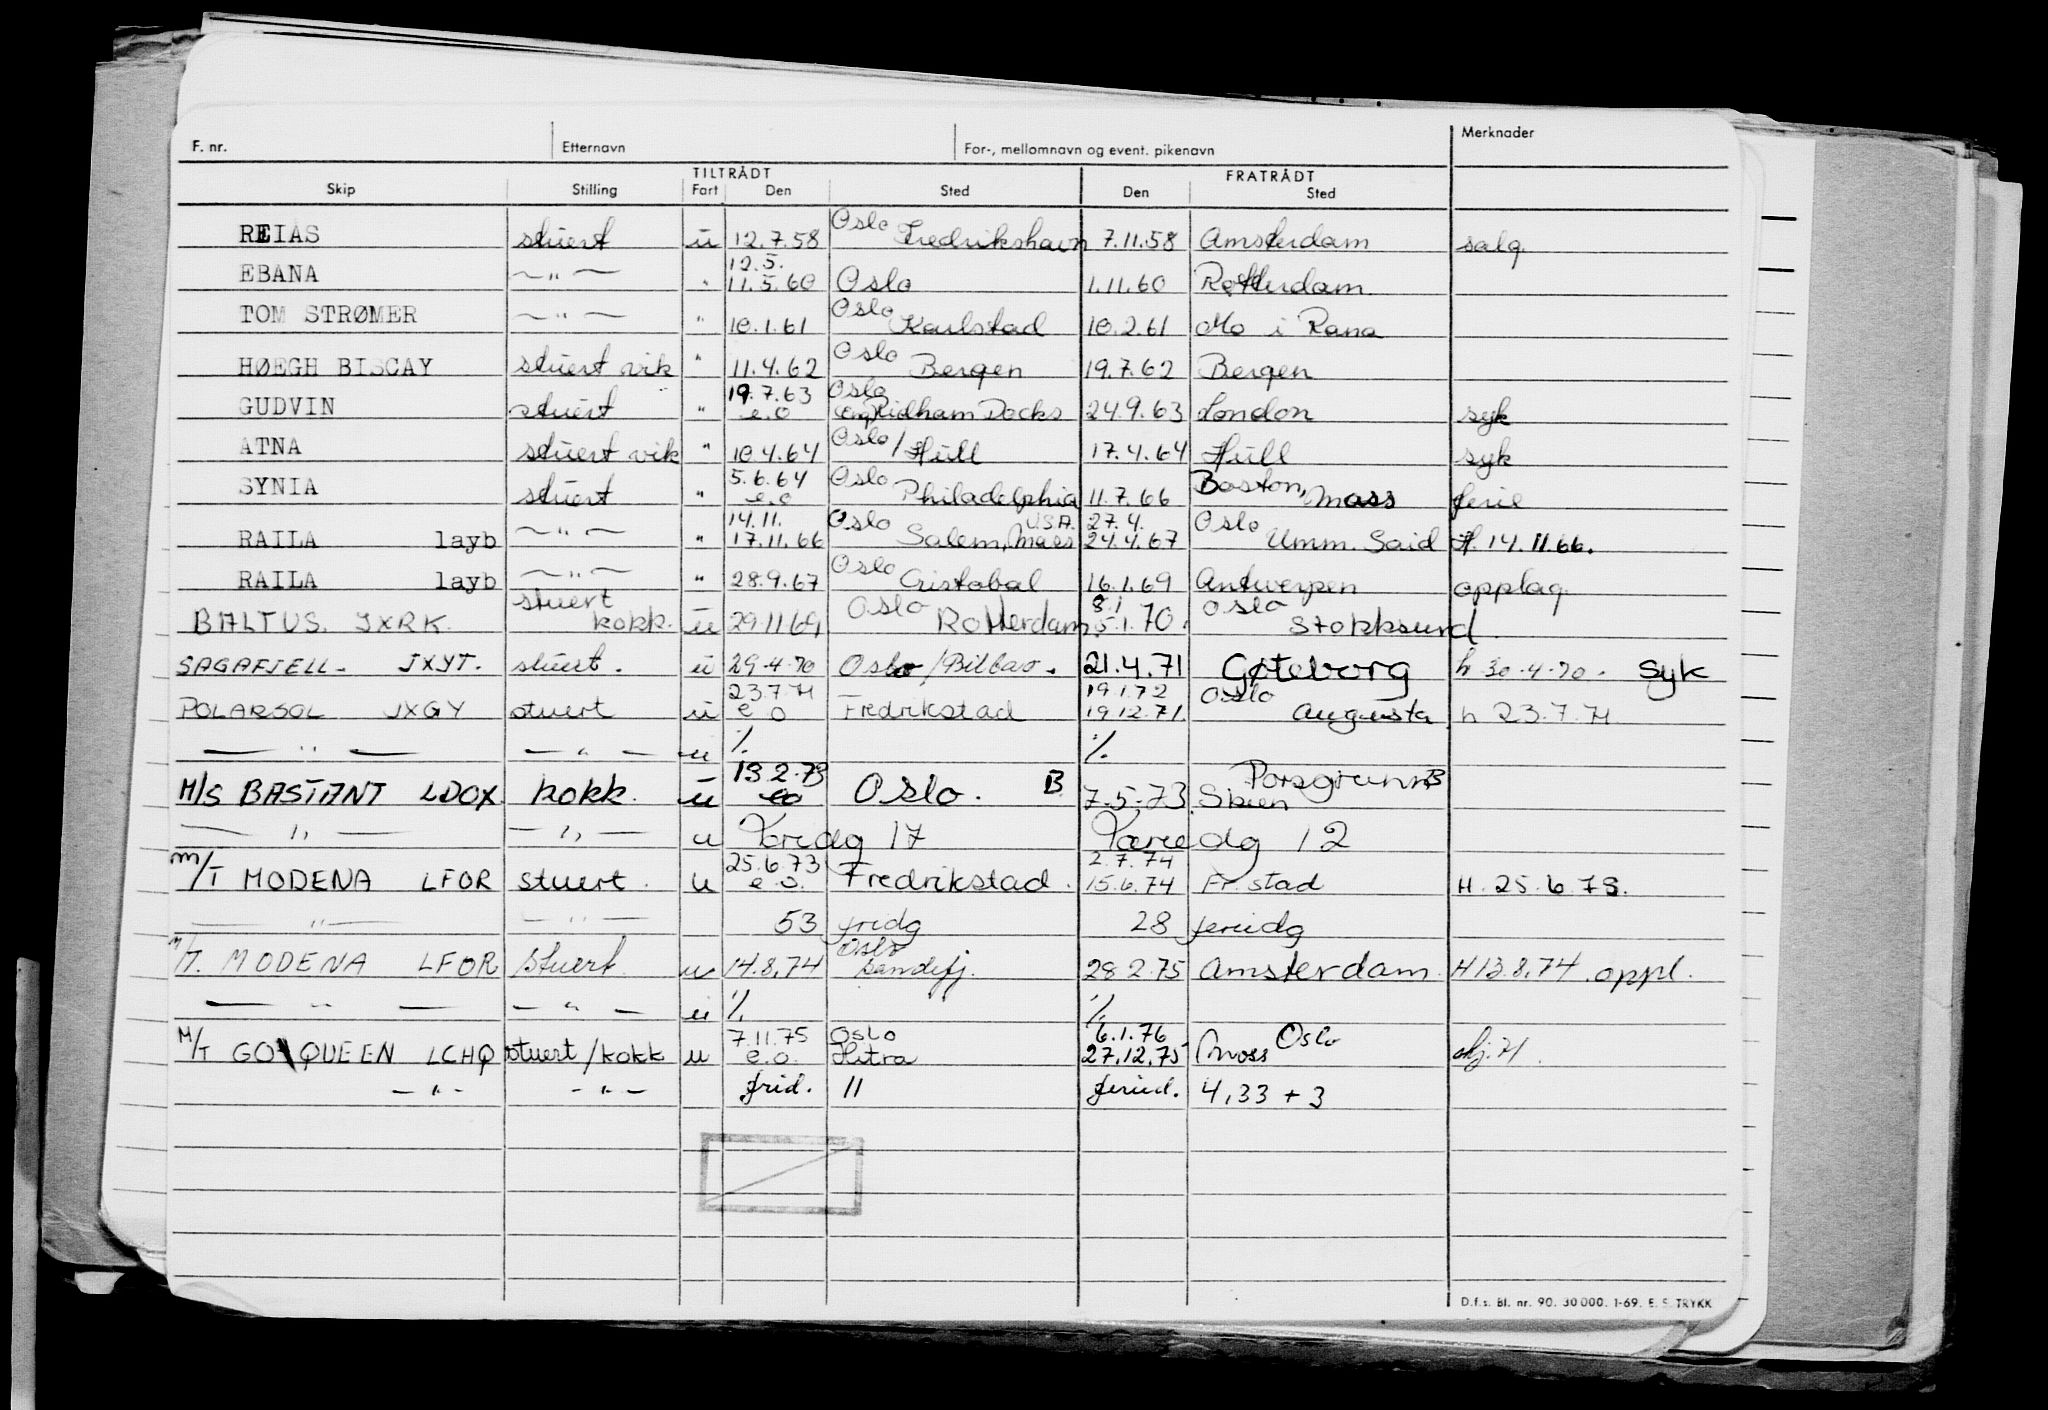 F. nr. Etternavn For-, mellomnavn og event. pikenavn Merknader
TILTRÅDT FRATRÅDT
Skip Stilling Fart Den Sted Den Sted
REIAS stuert u 12.7.58 Oslo Fredrikshavn 7.11.58 Amsterdam salg
EBANA —"— " 12.5. 11.5.60 Oslo 1.11.60 Rotterdam
TOM STRØMER —"— " 10.1.61 Oslo Karlstad 10.2.61 Mo i Rana
HØEGH BISCAY stuert vik " 11.4.62 Oslo Bergen 19.7.62 Bergen
GUDVIN stuert " 19.7.63 e.o Oslo Ridham Docks 24.9.63 London syk
ATNA stuert vik " 10.4.64 Oslo/Hull 17.4.64 Hull syk
SYNIA stuert " 5.6.64 e.o Oslo Philadelphia 11.7.66 Boston, Mass ferie
RAILA layb —"— " 14.11. 17.11.66 Oslo Salem, Mass USA. 27.4. 24.4.67 Oslo Umm. Said H. 14.11.66.
RAILA layb —"— " 28.9.67 Oslo Cristobal 16.1.69 Antwerpen opplag
BALTUS. JXRK. stuert kokk. u 29.11.69 Oslo Rotterdam 8.1 5.1.70. Oslo Stokksund.
SAGAFJELL - JXYT. stuert. u 29-4-70 Oslo/Bilbao. 21.4.71 Gøteborg h 30-4-70. Syk
POLARSOL JXGY stuert u 23.7.71 e o Fredrikstad 19.1.72 19.12.71 Oslo Augusta h 23.7.71
— " — — " — u %. %.
M/S BASTANT LDOX kokk. u 13.2.73 eo Oslo. B 7.5.73 Porsgrunn B Skien
— " — — " — u Faridg 17 Færiedg 12
M/T MODENA LFOR stuert. u 25.6.73 e.o. Fredrikstad. 2.7.74 15.6.74 Fr.stad H. 25.6.73.
— " — — " — 53 fridg 28 feriedg
M/T. MODENA LFOR Stuert. u 14.8.74 Oslo Sandefj. 28.2.75 Amsterdam. H 13.8.74. oppl.
— " — — " — u %. %.
M/T GOLQUEEN LCHQ stuert/kokk u 7.11.75 e.o. Oslo Hitra 6.1.76 27.12.75 Oslo Moss
— " — — " — frid. 11 feried. 4,33 + 3
D.f.s. Bl. nr. 90. 30 000. 1-69. E. S. TRYKK